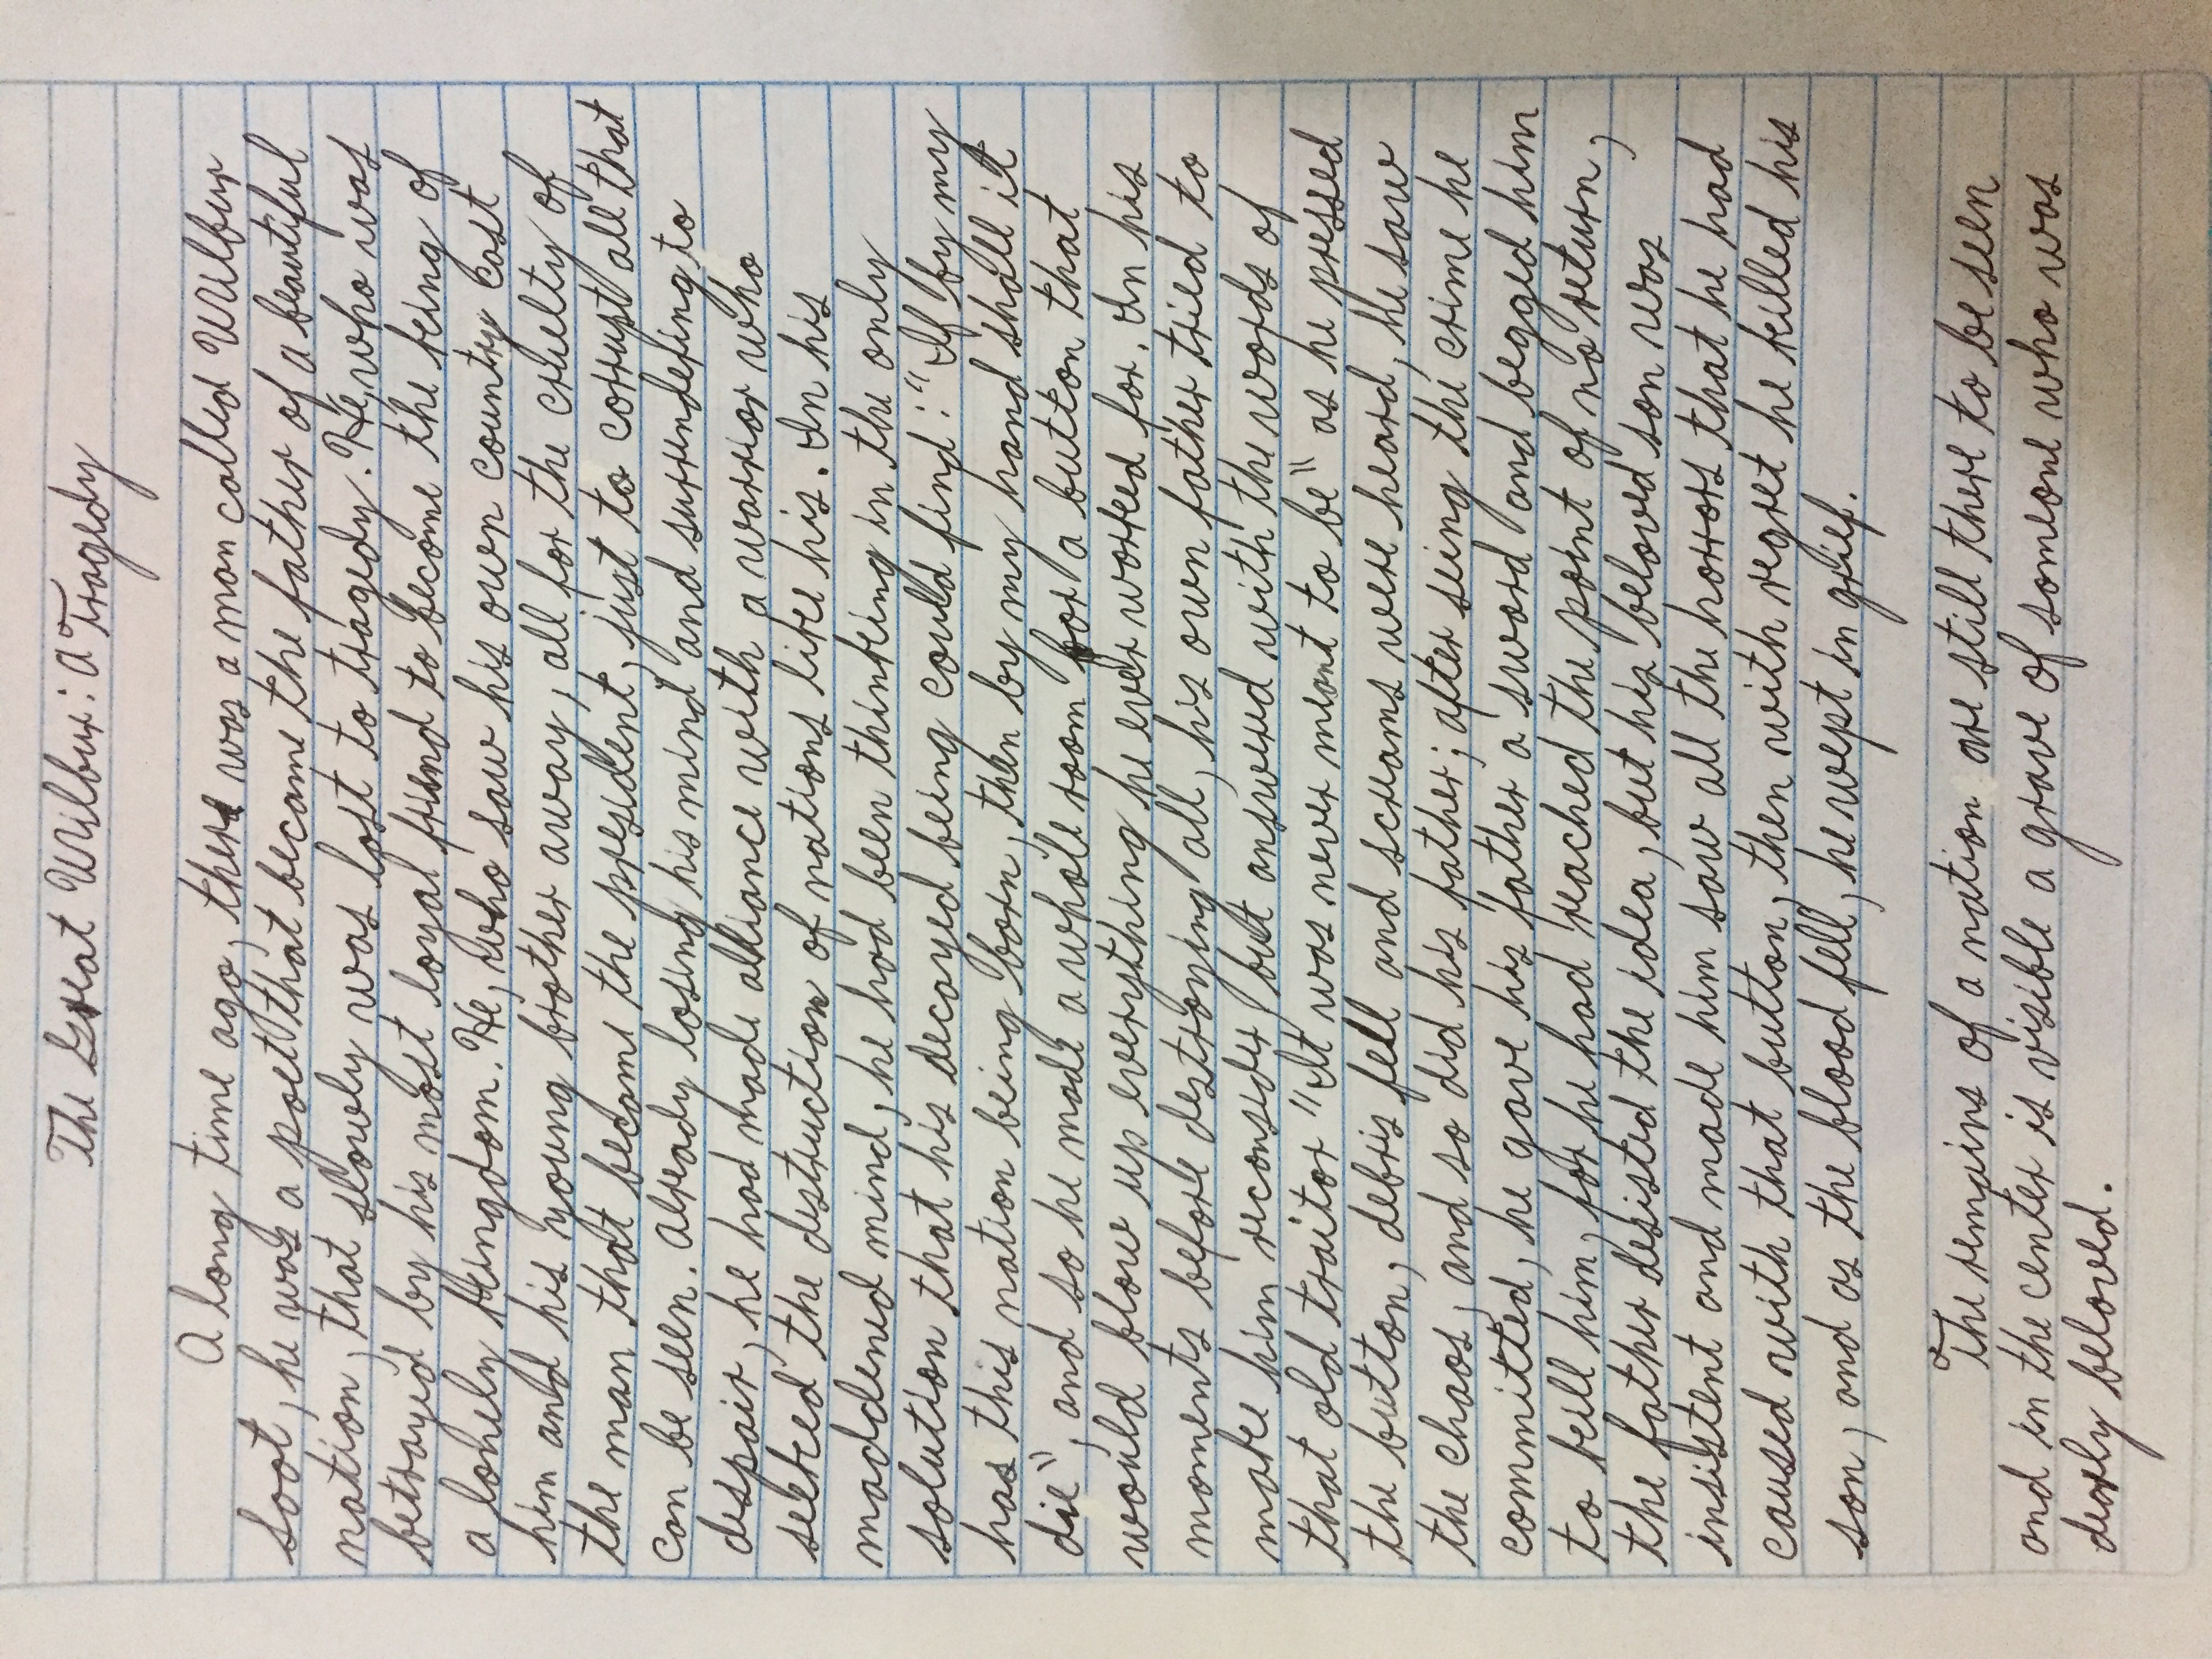 The Great Wilbur: A Tragedy
A long time ago, there was a man called Wilbur
Soot, he was a poet that became the father of a beautiful
nation, that slowly was lost to tragedy. He, who was
betrayed by his most loyal friend to become the being of
a lonely kingdom. He, who saw his own country cast
him and his young brother away, all for the cruelty of
the man that became the president, just to corrupt all that
can be seen. Already losing his mind and surrendering to
despair, he had made alliance with a warrior who
seeked the destruction of nations like his. In his
maddened mind, he had been thinking in the only
solution that his decayed being could find: "If by my
has this nation being born, then by my hand shall it
die", and so he made a whole room for a button that
would blow up everything he ever worked for. In his
moments before destroying all, his own father tried to
make him reconsider, but answered with the words of
that old traitor "It was never meant to be" as he pressed
the button, debris fell and screams were heard, he saw
the chaos, and so did his father; after seing the crime he
committed, he gave his father a sword and begged him
to kill him, for he had reached the point of no return,
the father desisted the idea, but his beloved son was
insistent and made him saw all the horrors that he had
caused with that button, then with regret he killed his
son, and as the blood fell, he wept in grief.
The remains of a nation are still there to be seen
and in the center is visible a grave of someone who was
dearly beloved.